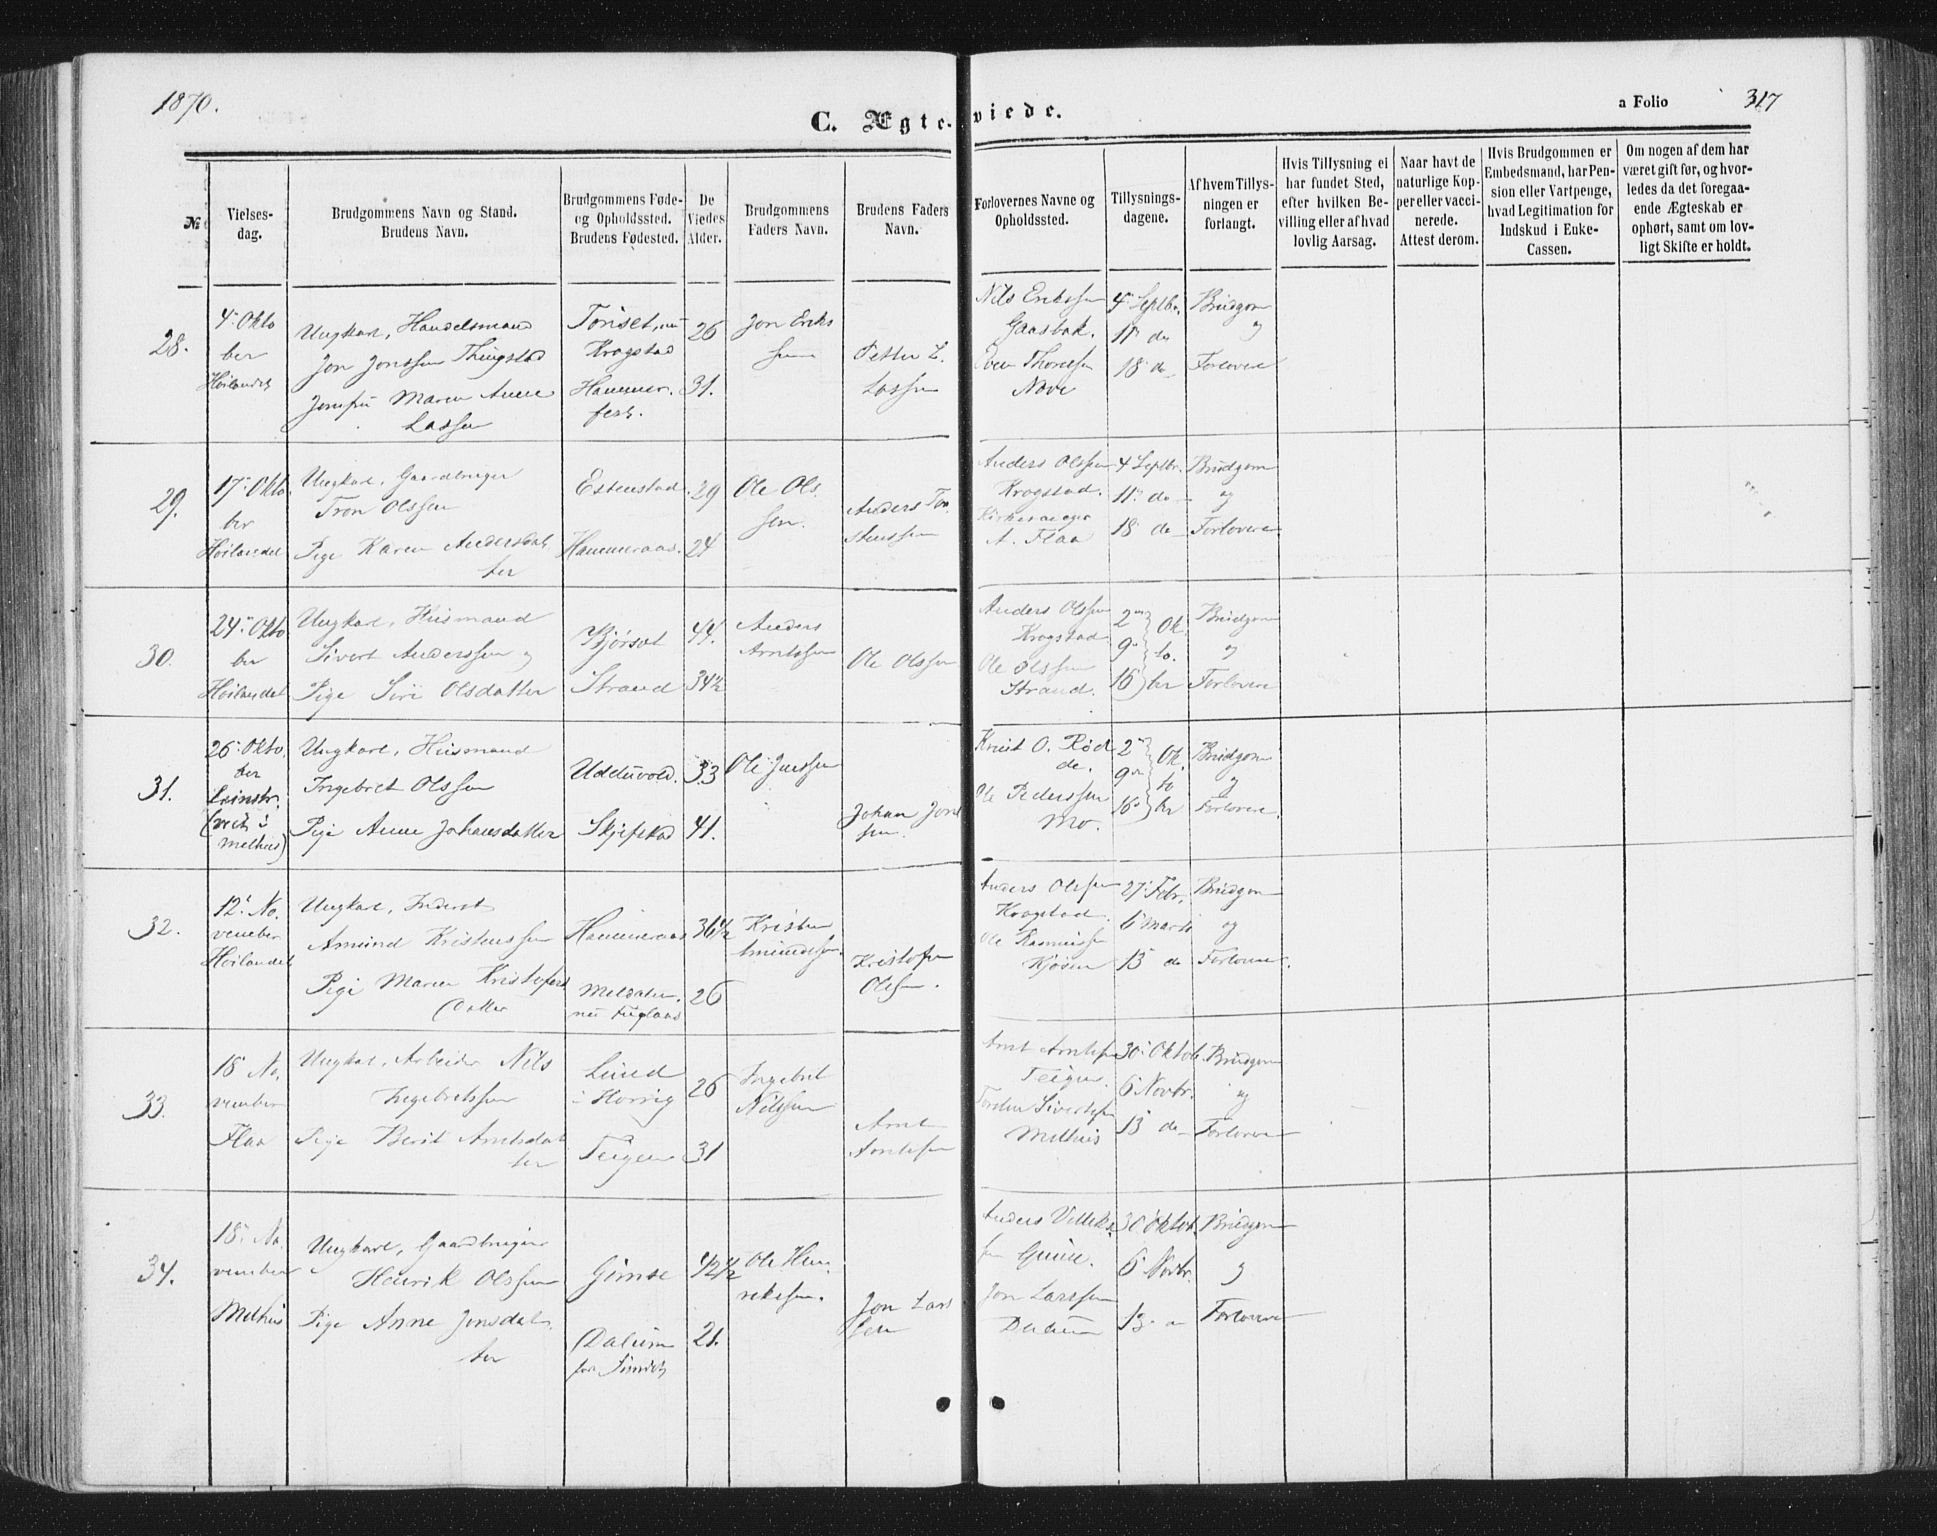 1870.
C. Ægteviede.
a Folio 317
№
Vielses-
dag.
Brudgommens Navn og Stand.
Brudens Navn.
Brudgommens Føde-
og Opholdssted.
Brudens Fødested.
De
Viedes
Alder.
Brudgommens
Faders Navn.
Brudens Faders
Navn.
Forlovernes Navne og
Opholdssted.
Tillysnings-
dagene.
Af hvem Tillys-
ningen er
forlangt.
Hvis Tillysning ei
har fundet Sted,
efter hvilken Be-
villing eller af hvad
lovlig Aarsag.
Naar havt de
naturlige Kop-
per eller vacci-
nerede.
Attest derom.
Hvis Brudgommen er
Embedsmand, har Pen-
sion eller Vartpenge,
hvad Legitimation for
Indskud i Enke-
Cassen.
Om nogen af dem har
været gift før, og hvor-
ledes da det foregaa-
ende Ægteskab er
ophørt, samt om lov-
ligt Skifte er holdt.
28.
4. Okto
ber
Høilandet
Ungkarl, Handelsmand
Jon Jonssen Thingstad
Jomfru Maren Anne
Lassen
Tønset, nu
Krogstad
Hammer-
fest.
26
31.
Jon Eriks
sen
Petter L.
Lassen
Nils Erikssen
Gaasbak.
Even Thoresen
Nove
4. Septbr.
11. do
18. do
Brudgom
og
Forlovere
29.
17. Okto
ber
Høilandet
Ungkarl, Gaardbruger
Tron Olssen
Pige Karen Andersdat
ter
Estenstad
Hammeraas.
29
24
Ole Ols
sen.
Anders Tor
stenssen
Anders Olssen
Krogstad.
Kirkesanger
A. Flaa
4 Septbr.
11. do
18. do
Brudgom
og
Forlovere
30.
24. Okto
ber
Høilandet
Ungkarl, Husmand
Sivert Anderssen og
Pige Siri Olsdatter
Bjørset
Strand
44.
34½
Anders
Arntssen
Ole Olssen
Anders Olssen
Krogstad
Ole Olssen
Strand.
2
9
16
Ok
to.
ber
Brudgom
og
Forlovere
31.
26. Okto.
ber
Leinstr.
(viet i
Melhus)
Ungkarl, Husmand
Ingebret Olssen
Pige Anne Johansdatter
Udduvold.
Skjefstad
33
41.
Ole Jenssen
Johan Jons
sen.
Knut O. Rød
de.
Ole Pederssen
Mo.
2
9
16
Ok
to
ber
Brudgom
og
Forlovere.
32.
12. No.
vember
Høilandet
Ungkarl, Inderst
Amund Kristenssen
Pige Maren Kristofers
Datter
Hammeraas
Meldalen.
nu Fuglaas
36½
26
Kristen
Amundsen.
Kristofer
Olssen.
Anders Olssen
Krogstad.
Ole Rasmussen
Kjøsen
27. Febr.
6 Marts
13 do
Brudgom
og
Forlovere.
33.
18 No.
vember
Flaa
Ungkarl, Arbeider Nils
Ingebretssen
Pige Berit Arntsdat
ter
Lund
i Horrig
Teigen
26
31
Ingebret
Nilssen
Arnt
Arntssen
Arnt Arntssen
Teigen.
Sivertssen
Melhus
30. Oktob.
6 Novbr.
13 do
Brudgom
og
Forlovere
34.
18. No.
vember
Melhus
Ungkarl, Gaardbruger
Henrik Olssen
Pige Anne Jonsdat
ter
Gimse
Dalum
42½
21.
Ole Hen
rikssen.
Jon Lars
sen
Anders
sen Gimse.
Jon Larssen
30 Oktob.
6 Novbr.
13.
Brudgom
og
Forlovere